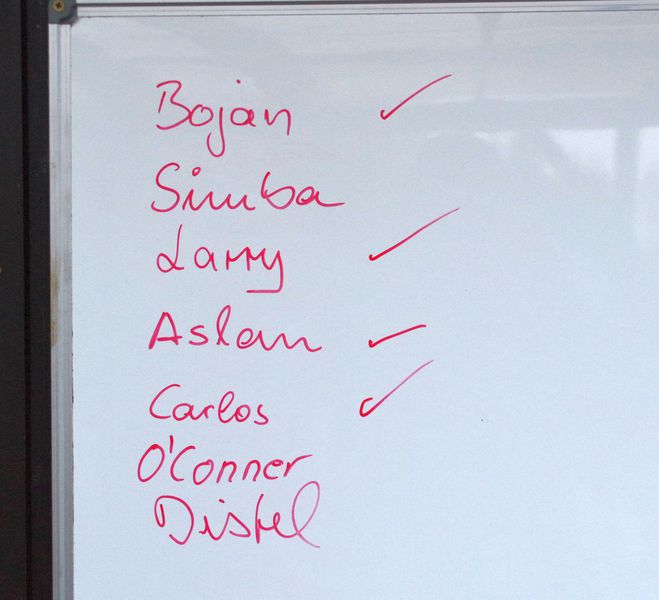 Bojan ✓
Simba
Larry ✓
Aslan ✓
Carlos ✓
O'Conner
Distel